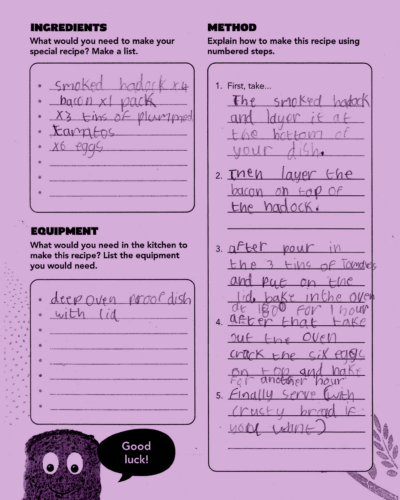 INGREDIENTS
What would you need to make your
special recipe? Make a list.
smoked hadock x4
bacon x1 pack
x3 tins of plummed
tomatos
x6 eggs
EQUIPMENT
What would you need in the kitchen to
make this recipe? List the equipment
you would need.
deep oven proof dish
with lid
Good
luck!
METHOD
Explain how to make this recipe using
numbered steps.
1. First, take...
The smoked hadock
and layer it at
the bottom of
your dish.
2. Then layer the
bacon on top of
the hadock.
3. after pour in
the 3 tins of Tomatoes
and put on the
lid. bake in the oven
at 180° for 1 hour
4. after that take
out the oven
crack the six eggs
on top and bake
for another hour
5. Finally serve (with
crusty bread if
you want)